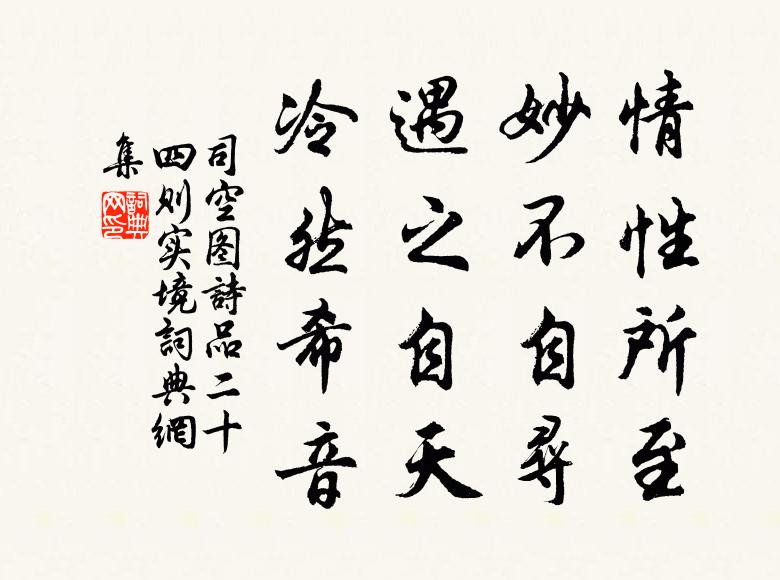 情性所至
妙不自尋
遇之自天
冷然希音
司空图詩品二十
四则实境詞典網
集
詞典網印